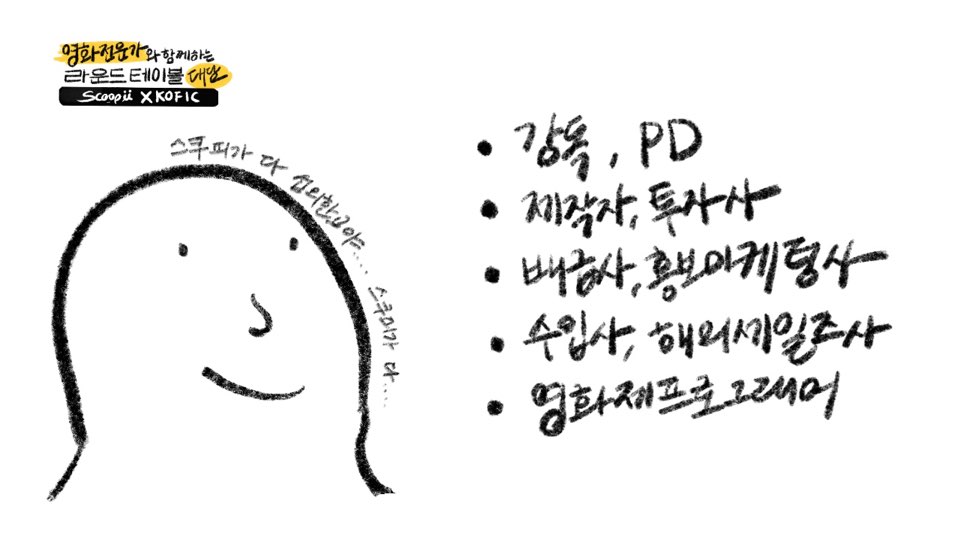 영화전문가와 함께하는
라운드 테이블 대담
Scoopii X KOFIC
스쿠피가 다 섭외한고야... 스쿠피가 다....
• 감독, PD
• 제작자, 투자사
• 배급사, 홍보마케팅사
• 수입사, 해외세일즈사
• 영화제프로그래머